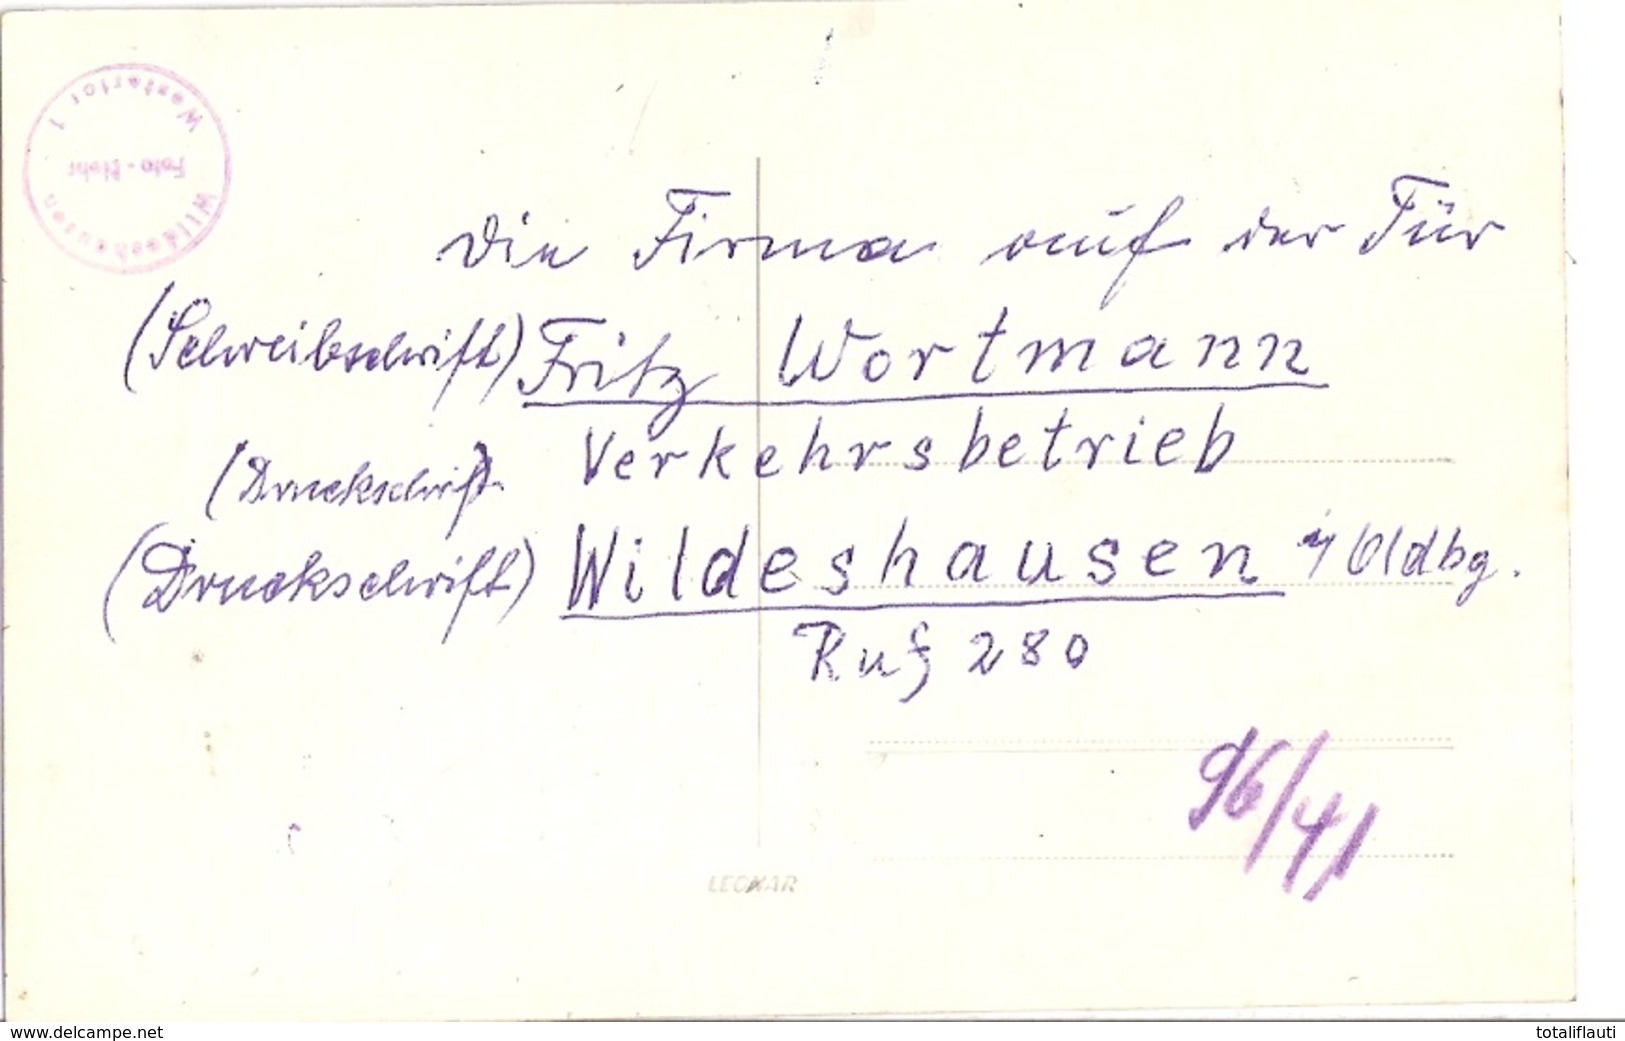 Wildeshausen
Foto - Stohr
Westertor 1
Die Firma auf der Tür
(Schreibschrift) Fritz Wortmann
(Druckschrift) Verkehrsbetrieb
(Druckschrift) Wildeshausen i/Oldbg.
Ruf 280
96/41
LEONAR
www.delcampe.net
totaliflauti